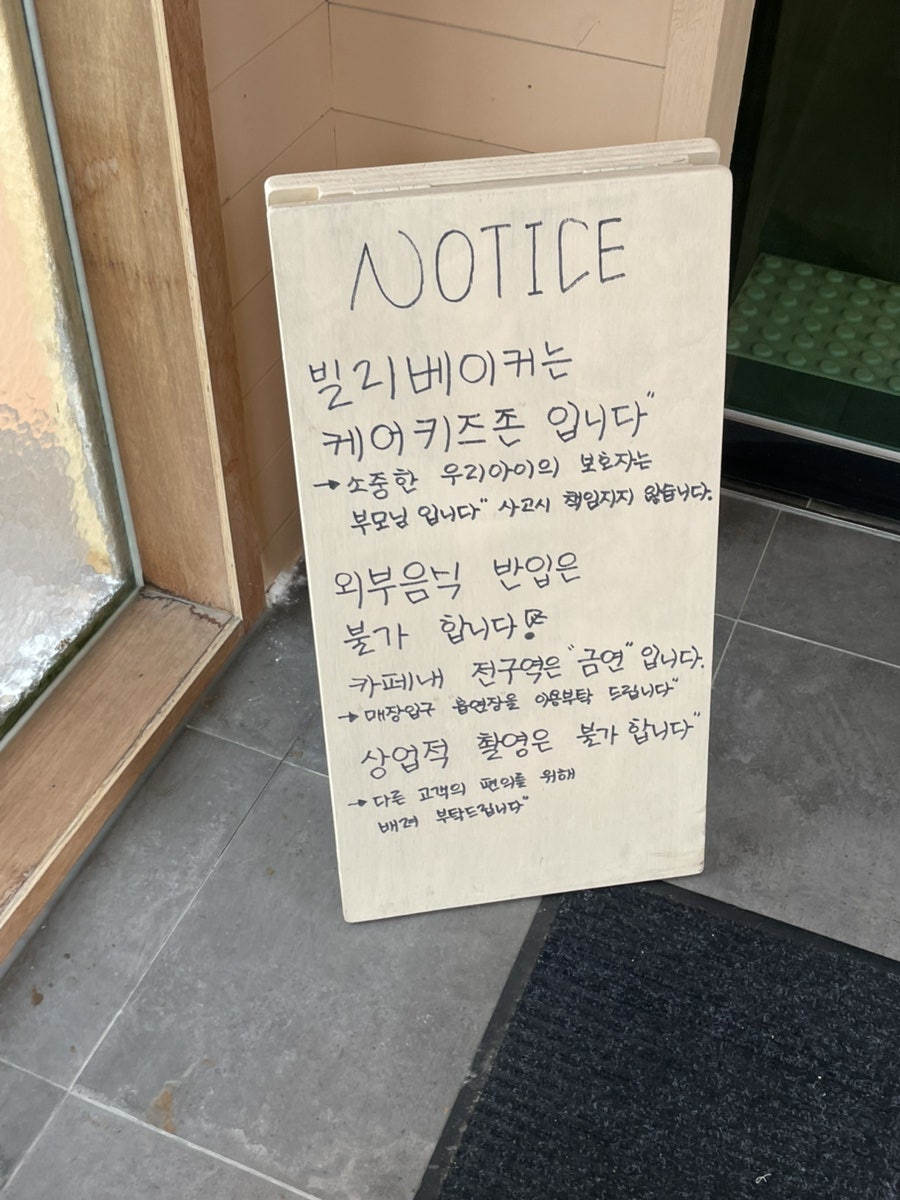 NOTICE
빌리베이커는
케어키즈존 입니다"
→ 소중한 우리아이의 보호자는
부모님 입니다" 사고시 책임지지 않습니다.
외부음식 반입은
불가 합니다!
카페내 전구역은 "금연" 입니다.
→ 매장입구 흡연장을 이용부탁 드립니다"
상업적 촬영은 불가 합니다"
→ 다른 고객의 편의를 위해
배려 부탁드립니다"